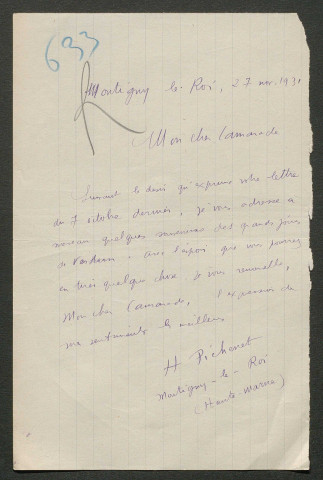 633
R
Montigny-le-Roi, 27 nov. 193
Mon cher Camarade
Suivant le désir qu'exprime votre lettre
du 7 octobre dernier, je vous adresse à
nouveau quelques souvenirs des grands jours
de Verdun - avec l'espoir que vous pourrez
en tirer quelque chose. Je vous renouvelle,
Mon cher Camarade, l'expression de
mes sentiments les meilleurs
H
Montigny-le-Roi
(Haute-Marne)